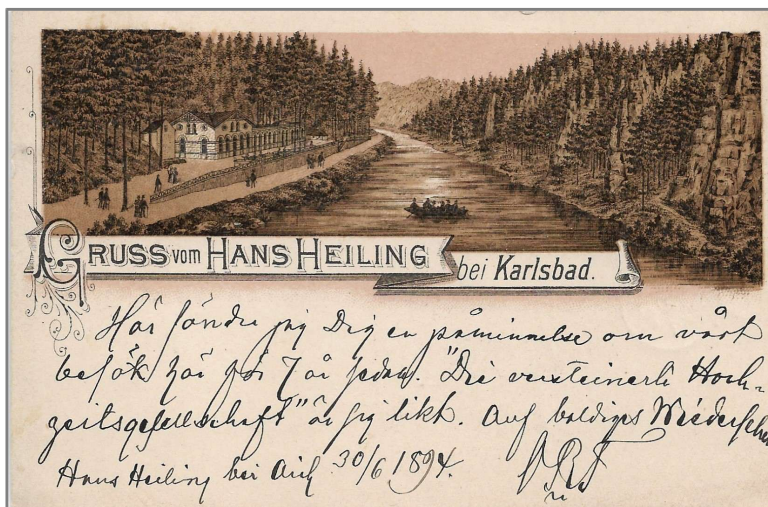 GRUSS vom HANS HEILING bei Karlsbad.
Här sänder jag Dig en påminnelse om vårt
besök här för 7 år sedan. "Die versteinerte Hoch-
zeitsgesellschaft" är sig likt. Auf baldiges Wiedersehen
Hans Heiling bei 30/6 1894.